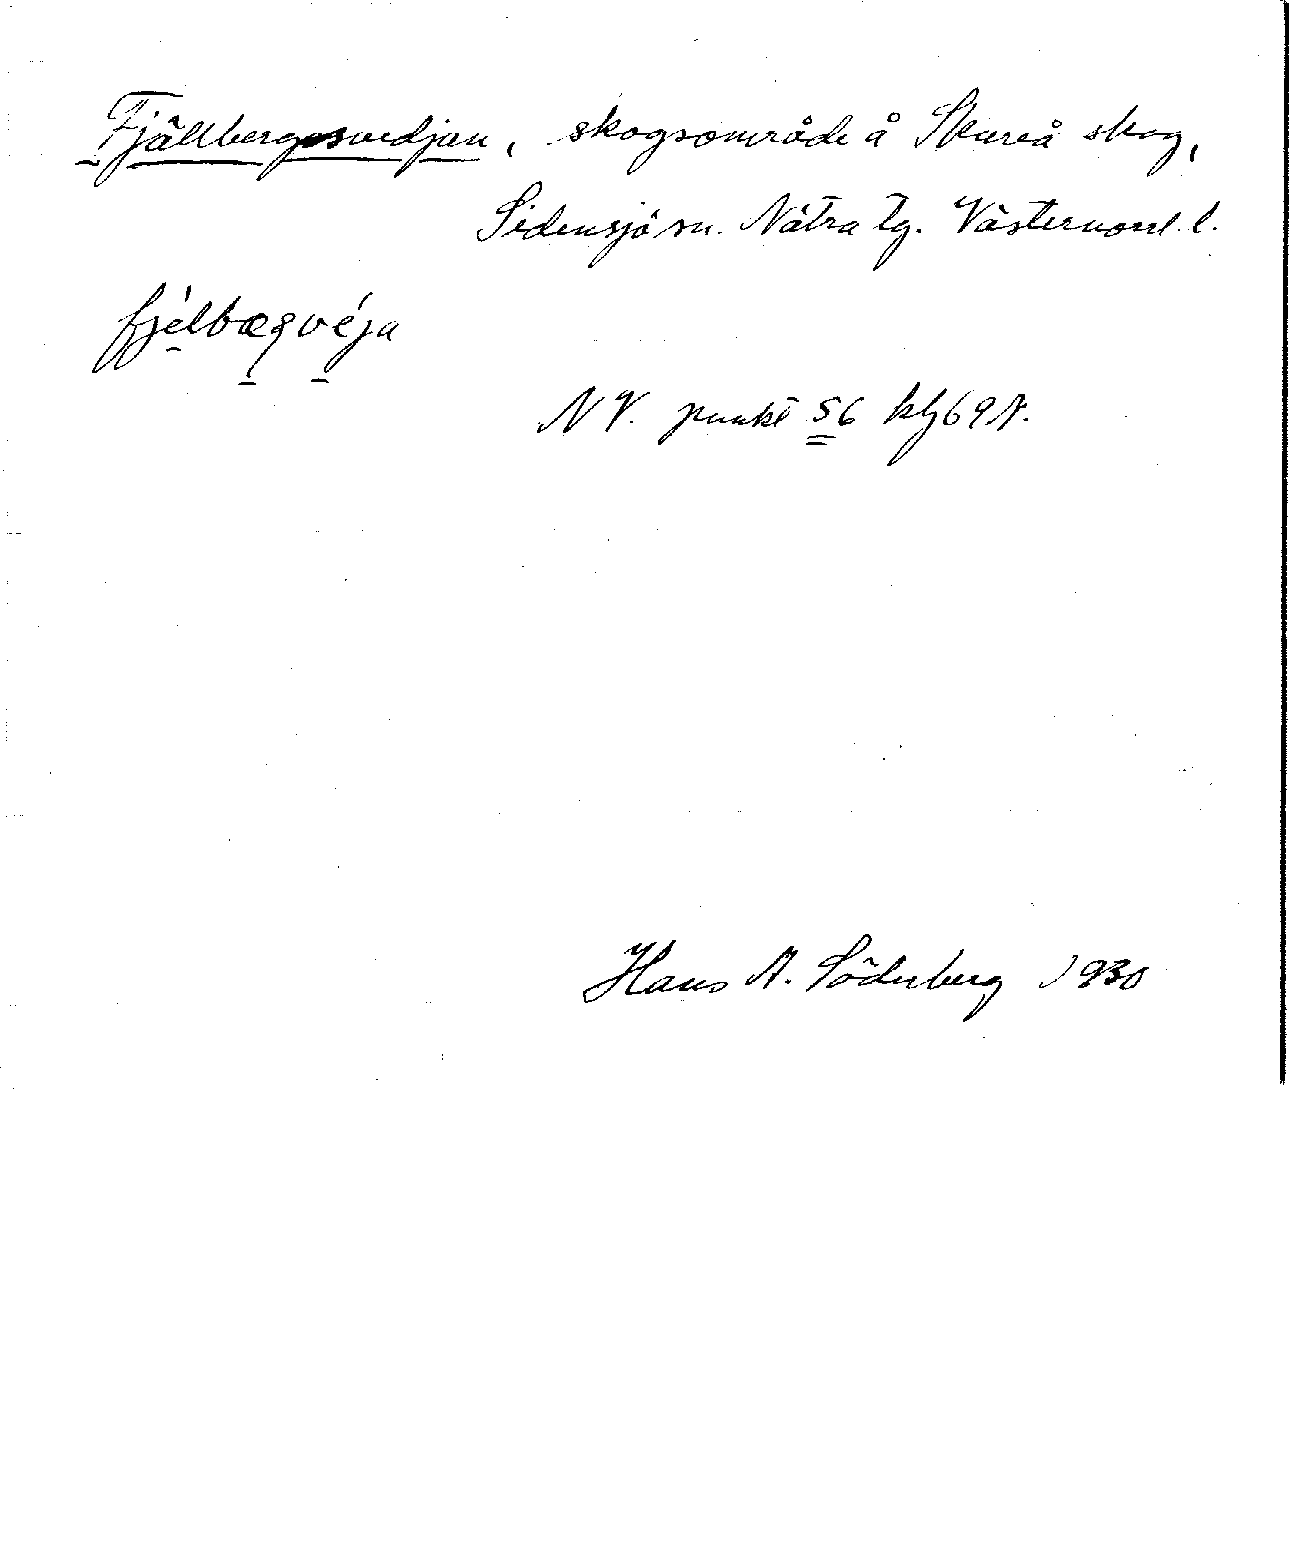 Fjällbergssvedjan, skogsområde å Skureå skog,
Sidensjö sn. Nätra tg. Västernorrl. l.
fjélbægvéja
NV. punkt 56 klj69N.
Hans A. Söderberg 1930